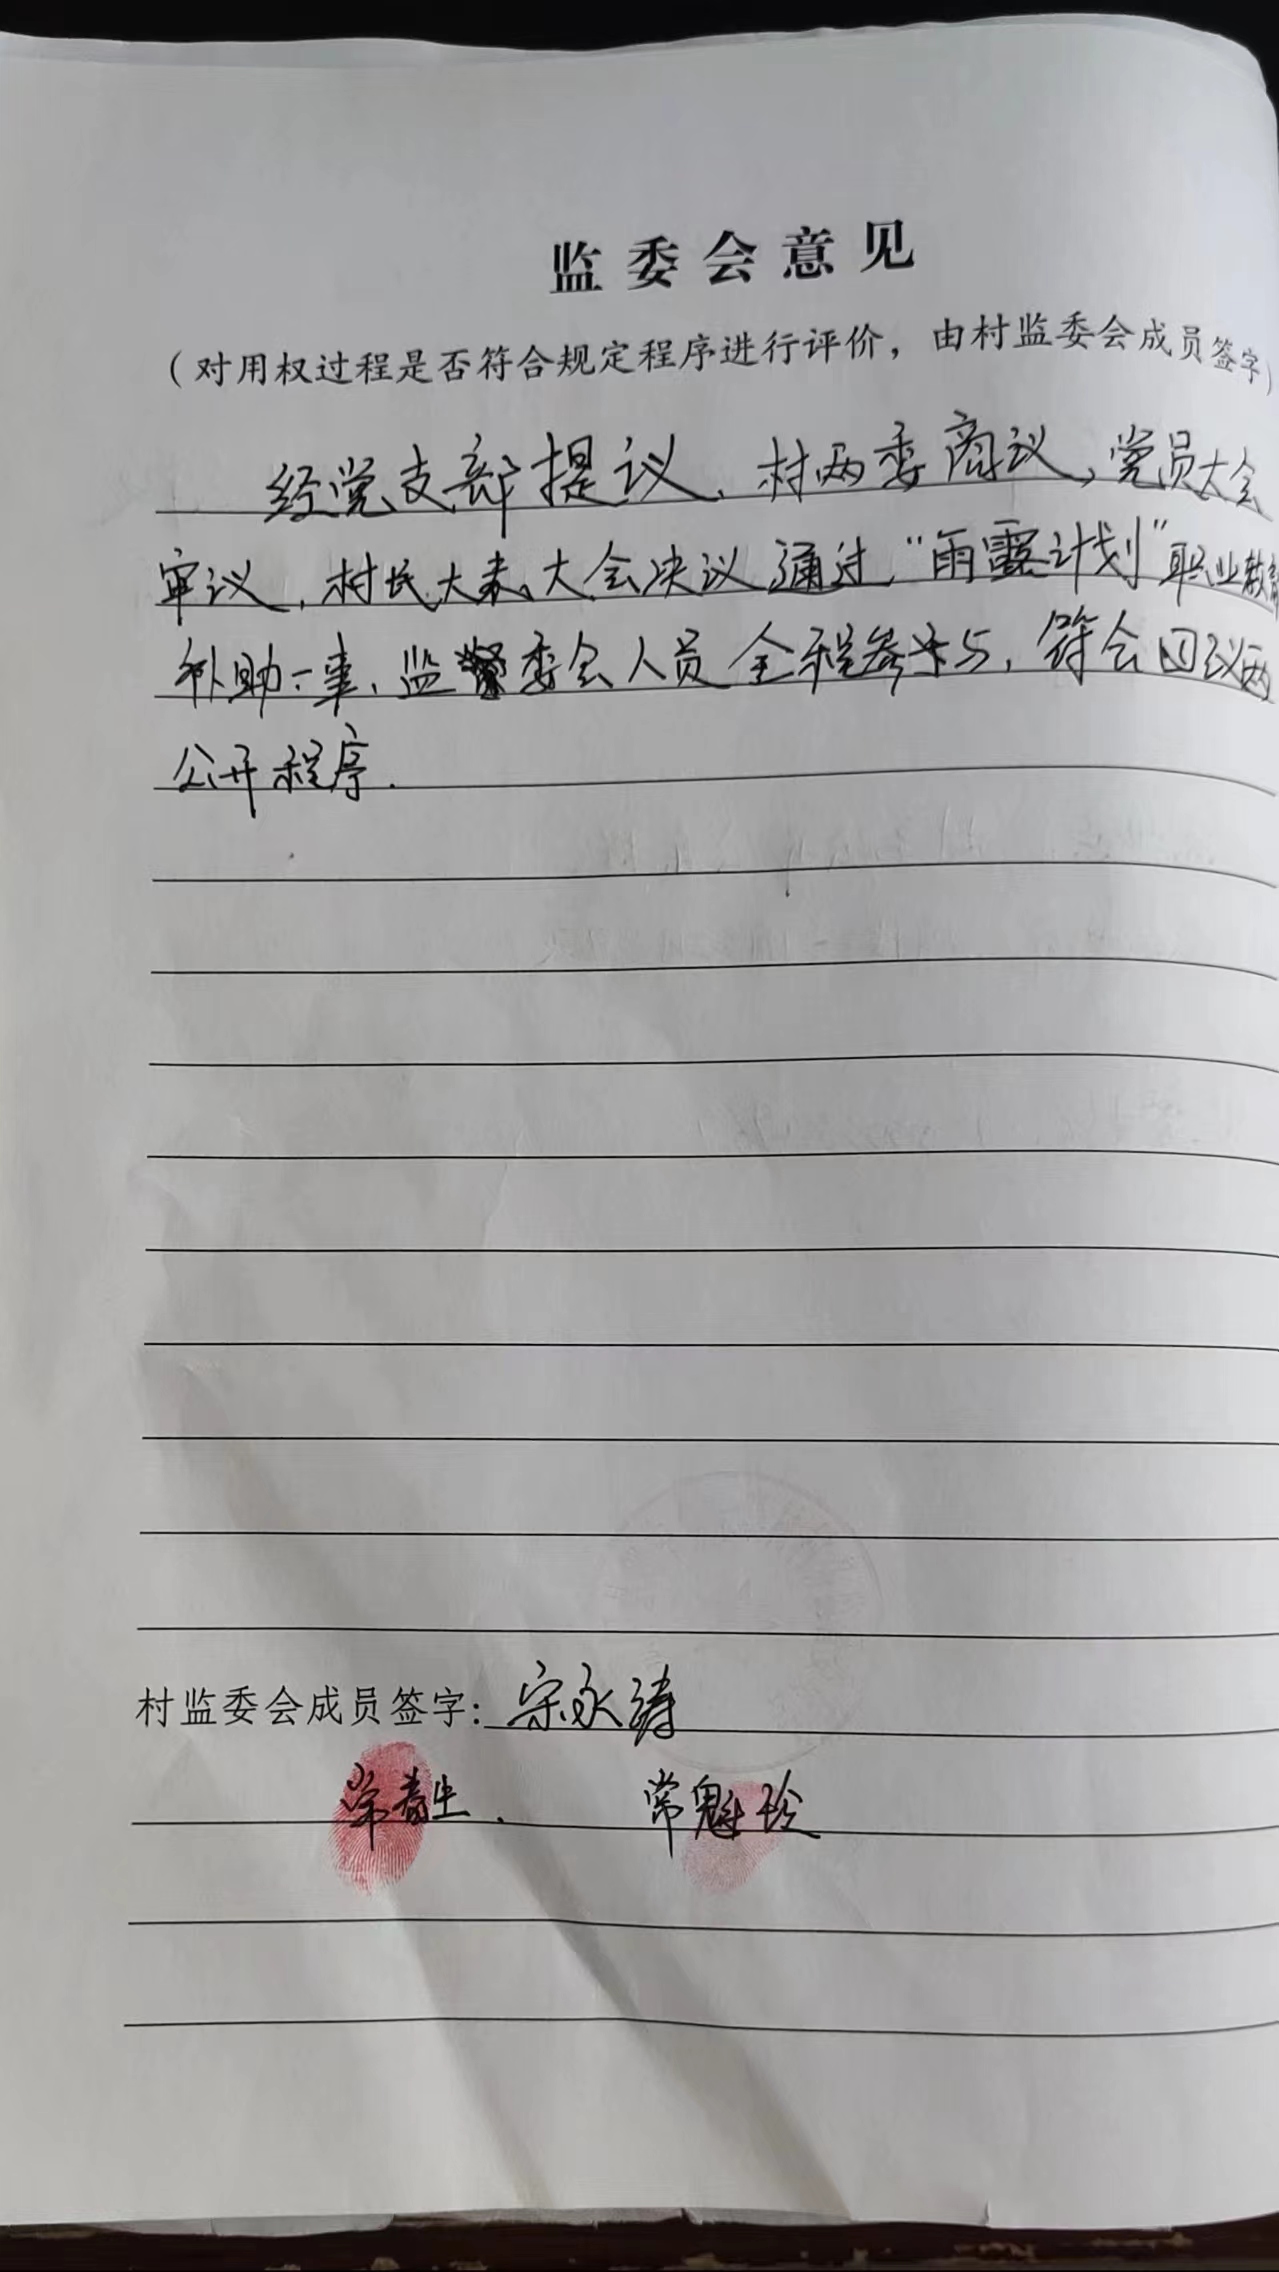 监委会意见
（对用权过程是否符合规定程序进行评价，由村监委会成员签字）
经党支部提议、村两委商议、党员大会
审议、村民大表、大会决议通过"雨露计划"职业教育
补助一事、监委会人员全程参与，符合四议两
公开程序.
村监委会成员签字：宋永涛
常青生. 常魁玲